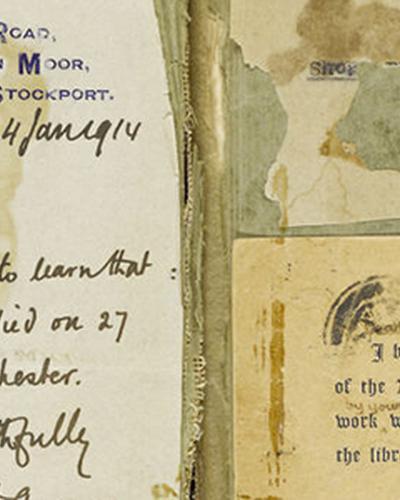 ROAD,
MOOR,
STOCKPORT.
4 Jan 1914
to learn that :
died on 27
hester.
thfully
Shop
I b
of the
by your
work w
the libr